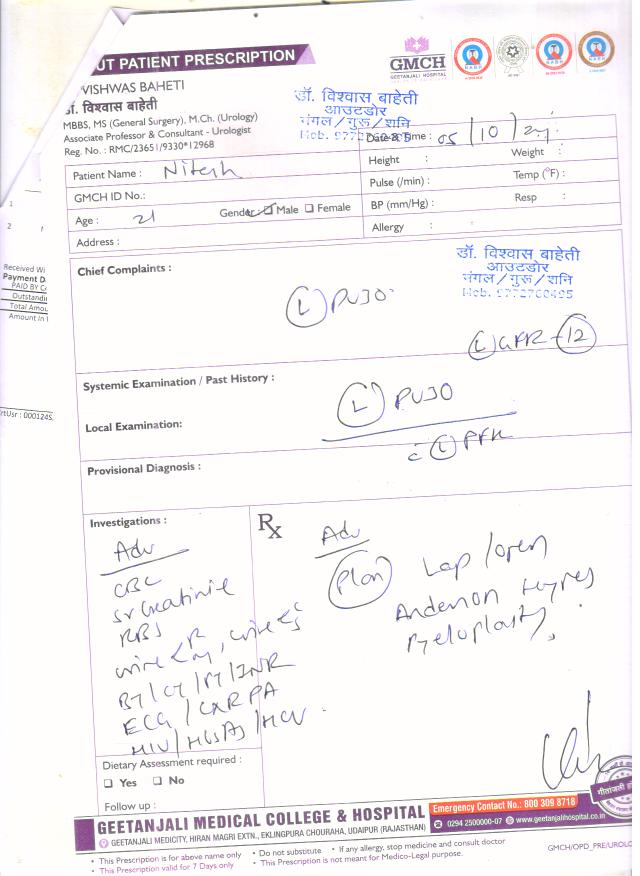 UT PATIENT PRESCRIPTION
GMCH
GEETANJALI HOSPITAL
VISHWAS BAHETI
डॉ. विश्वास बाहेती
MBBS, MS (General Surgery), M.Ch. (Urology)
Associate Professor & Consultant - Urologist
Reg. No. : RMC/23651/9330*12968
डॉ. विश्वास बाहेती
आउटडोर
मंगल/गुरू/शनि
Mob.
Date & Time : 05/10/24
Patient Name : Nitesh
Height : Weight :
GMCH ID No.:
Pulse (/min) : Temp (°F) :
Age : 21 Gender Male Female
BP (mm/Hg) : Resp :
Address :
Allergy :
Chief Complaints :
डॉ. विश्वास बाहेती
आउटडोर
मंगल/गुरू/शनि
Mob. 9772760495
(L) PUJO
(L) GFR - 12
Systemic Examination / Past History :
(L) PUJO
Local Examination:
c̄ (L) PFK
Provisional Diagnosis :
Investigations :
Adv
CBC
Sr Creatinine
RBS
urine < R/M, urine C/S
BT/CT/PT/INR
ECG/CXR PA
HIV/HBSAg/HCV
Rx
Adv
Plan Lap/open
Anderson Hynes
Pyeloplasty
Dietary Assessment required :
Yes No
Follow up :
GEETANJALI MEDICAL COLLEGE & HOSPITAL
GEETANJALI MEDICITY, HIRAN MAGRI EXTN., EKLINGPURA CHOURAHA, UDAIPUR (RAJASTHAN)
Emergency Contact No.: 800 309 8718
0294 2500000-07 www.geetanjalihospital.co.in
• This Prescription is for above name only • Do not substitute • If any allergy, stop medicine and consult doctor
• This Prescription valid for 7 Days only • This Prescription is not meant for Medico-Legal purpose.
GMCH/OPD_PRE/UROLO
1
2
Received Wi
Payment D
PAID BY C
Outstandi
Total Amou
Amount In
rtUsr : 000124S